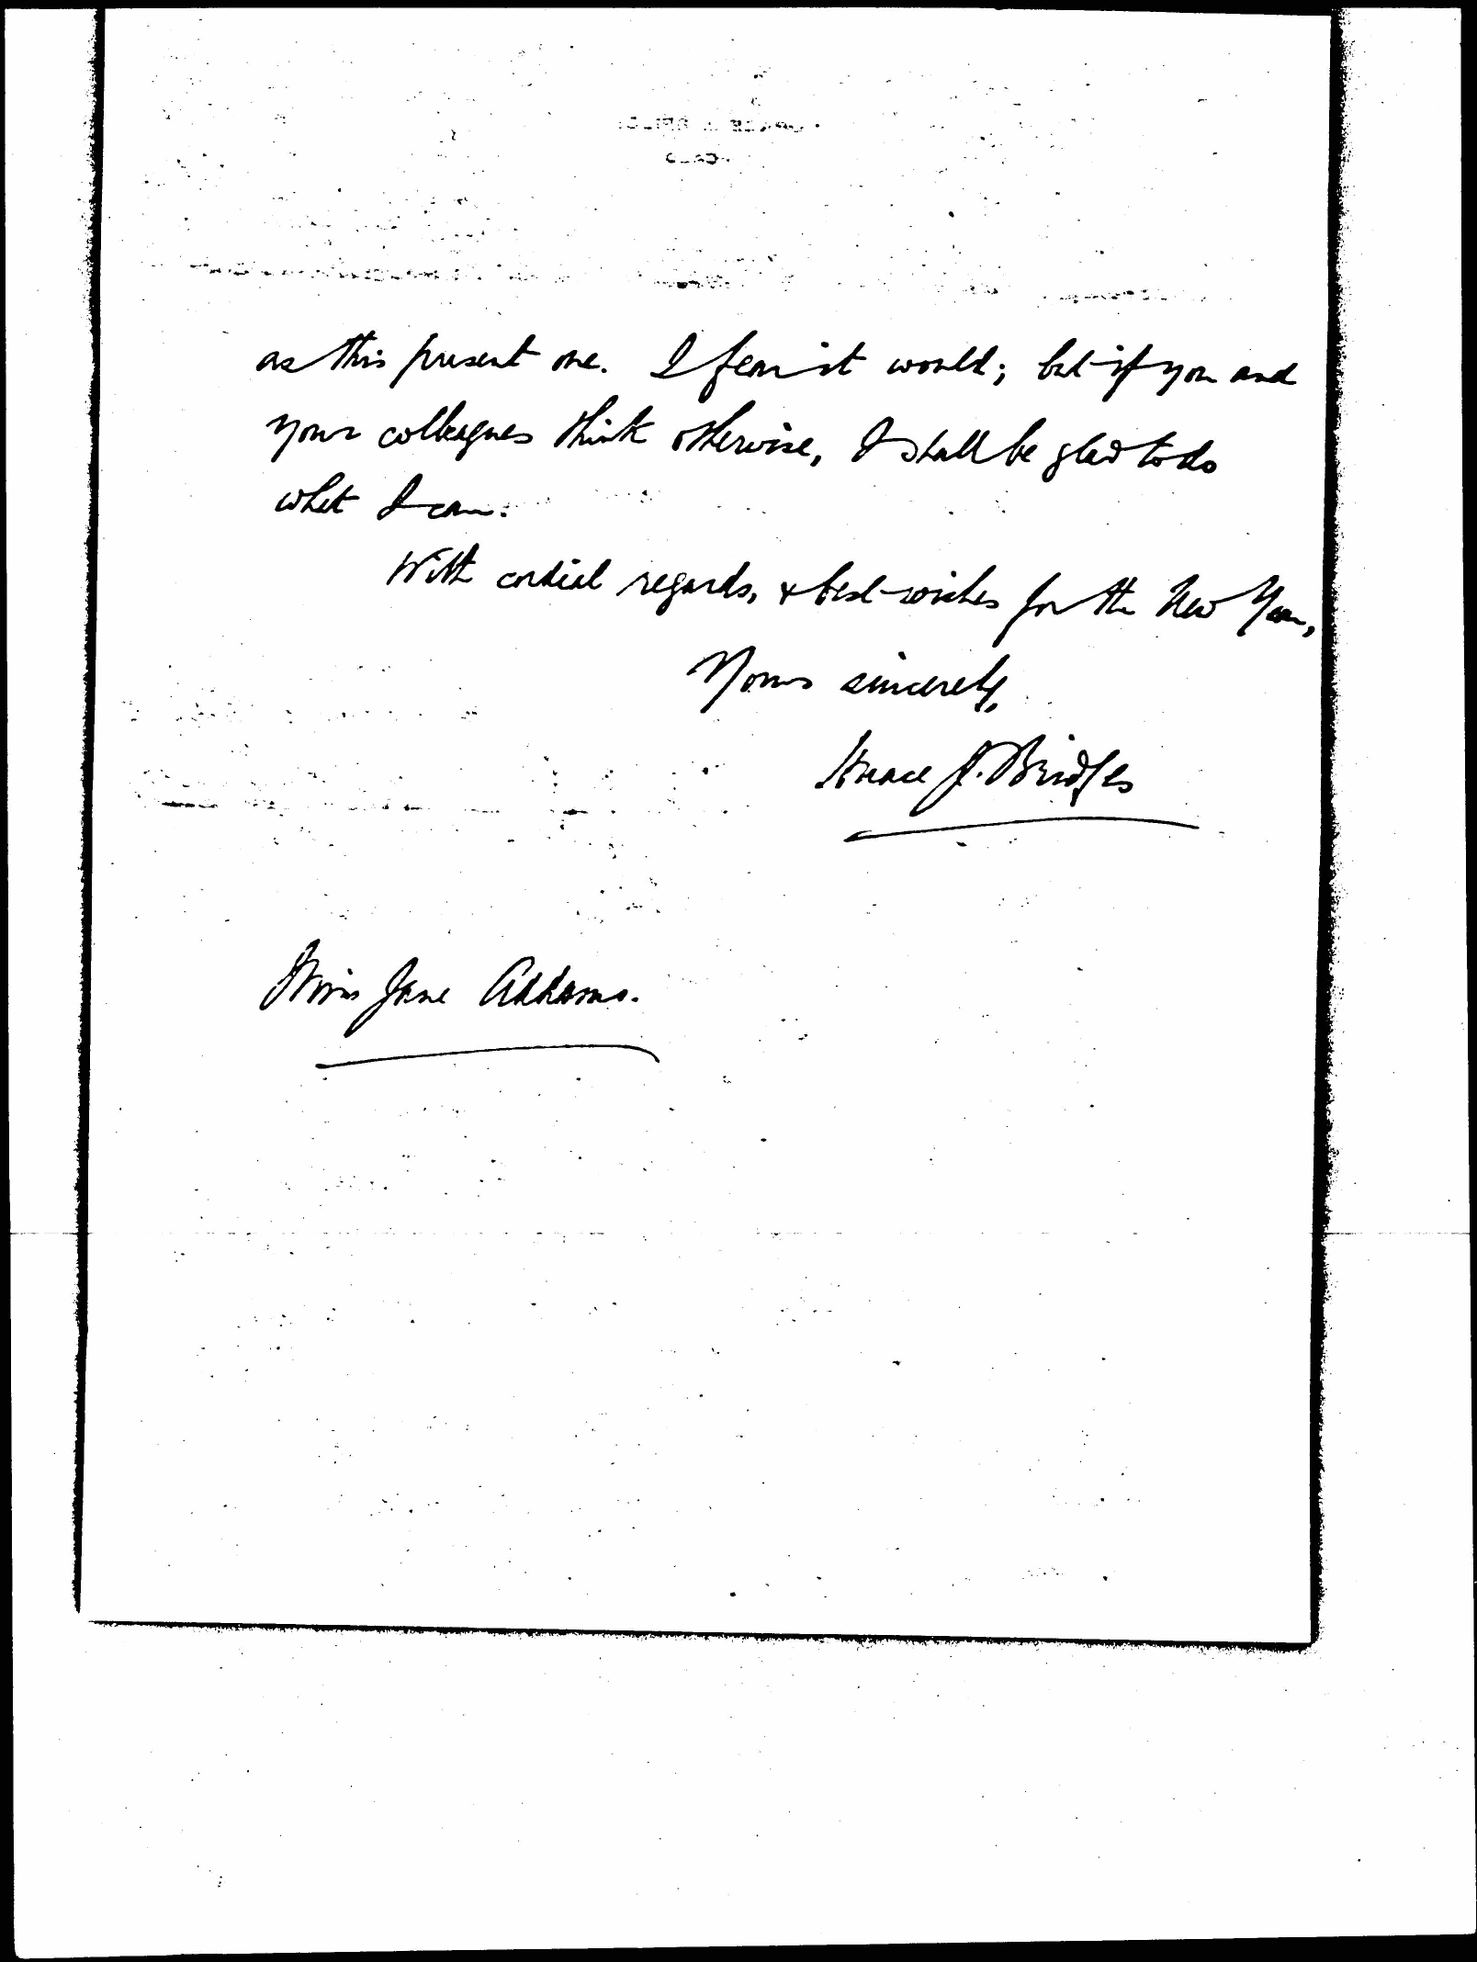 as this present one. I fear it would; but if you and
your colleagues think otherwise, I shall be glad to do
what I can.
With cordial regards, & best wishes for the New Year,
Yours sincerely,
Horace J. Bridges
Miss Jane Addams.